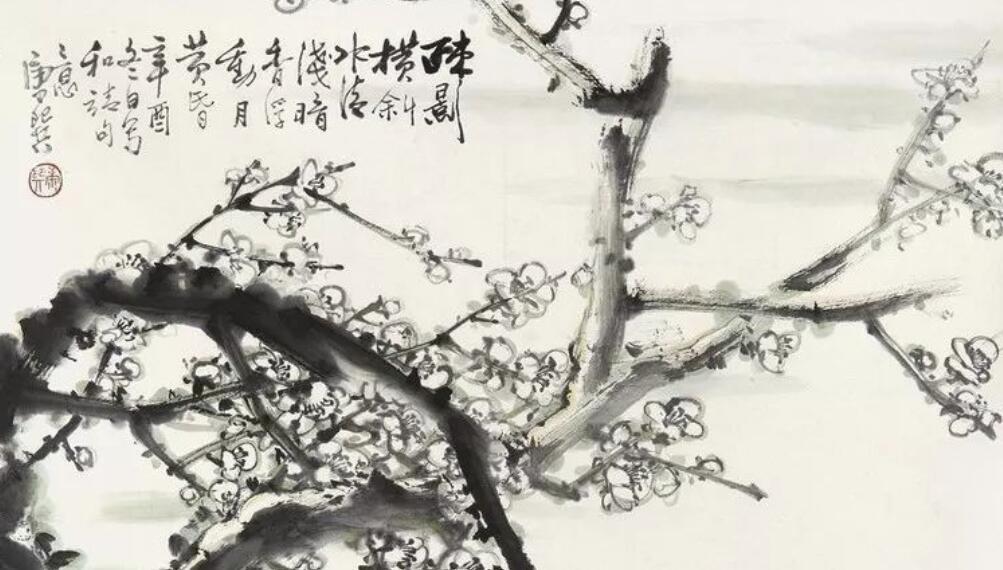 疎影
横斜
水清
淺暗
香浮
動月
黄昏
辛酉
冬日写
和靖句
之意